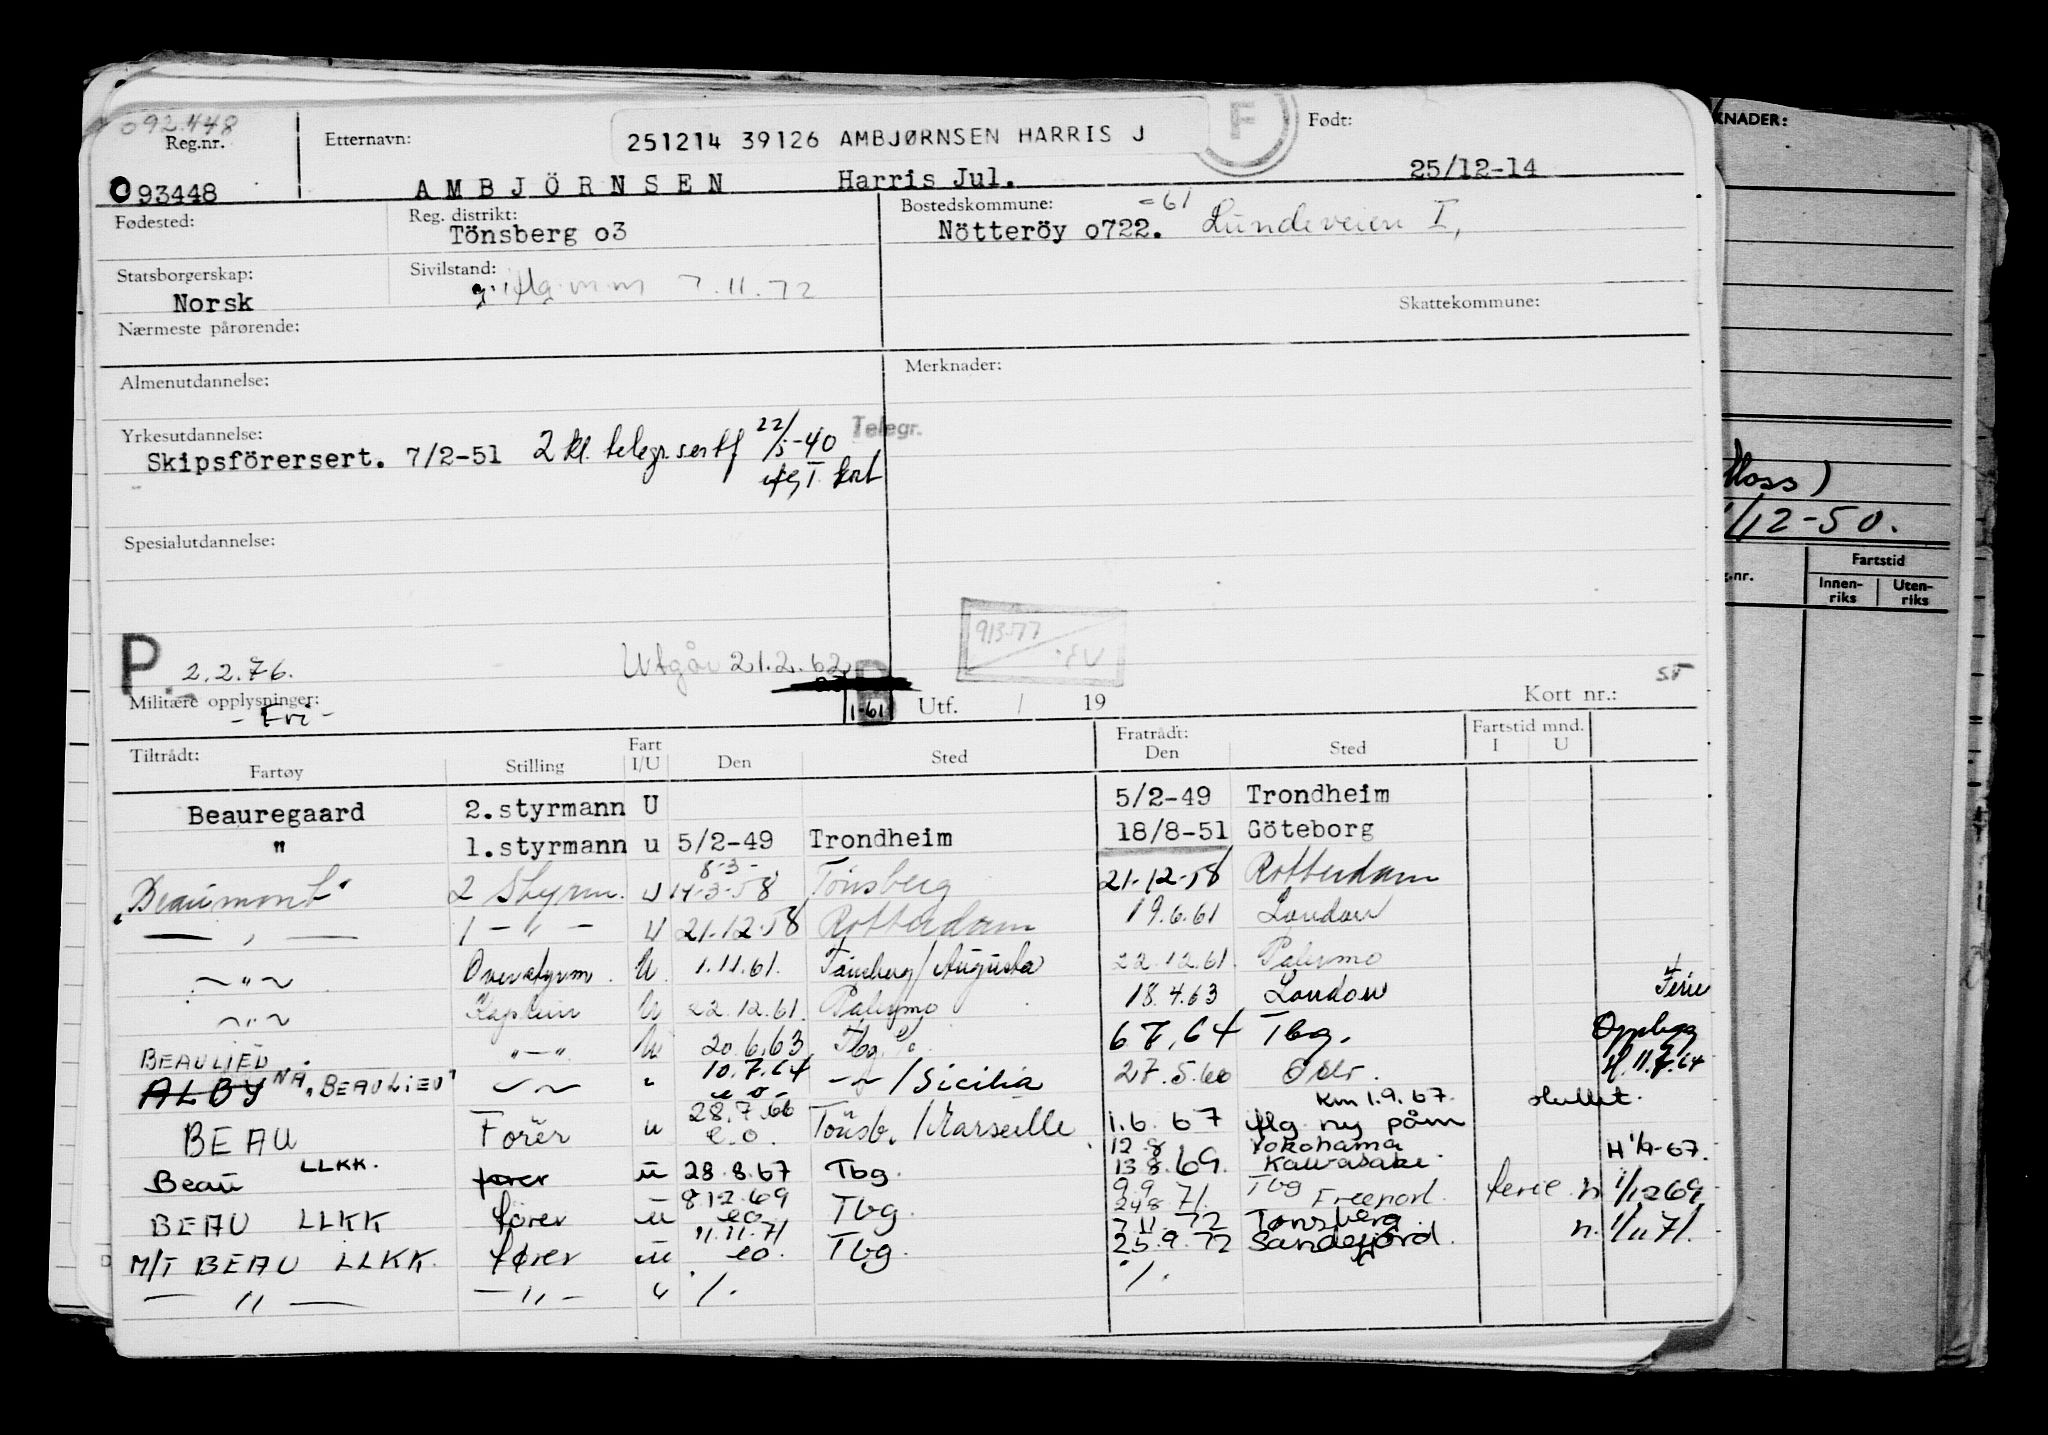 092.448
Reg.nr.
093448
Etternavn:
251214 39126 AMBJØRNSEN HARRIS J
F
Født:
AMBJÖRNSEN Harris Jul.
25/12-14
Fødested:
Reg. distrikt:
Tönsberg o3
Bostedskommune:
-61
Nötteröy o722. Lundeveien I,
Statsborgerskap:
Norsk
Sivilstand:
7.11.72
Skattekommune:
Nærmeste pårørende:
Almenutdannelse:
Merknader:
Yrkesutdannelse:
Skipsförersert. 7/2-51 2 kl. telegr. sertf 22/5-40
Telegr.
I. kort
Spesialutdannelse:
P.
2.2.76.
Utgår 21.2.62
913-77
Militære opplysninger:
- Fri -
1-61
Utf. / 19
Kort nr.:
Tiltrådt:
Fartøy Stilling Fart I/U Den Sted Fratrådt: Den Sted Fartstid mnd. I U
Beauregaard 2.styrmann U 5/2-49 Trondheim
" 1.styrmann u 5/2-49 Trondheim 18/8-51 Göteborg
8-3-
"Beaumont" 2 Styrm. U 14-3-58 Tönsberg 21-12-58 Rotterdam
— " — 1 - " - U 21-12-58 Rotterdam 19.6.61 London
~ " ~ Overstyrm. U. 1.11.61. Tönsberg/Augusta 22.12.61. Palermo
~ " ~ Kaptein U 22.12.61. Palermo 18.4.63 London Ferie
BEAULIEU " — " U 20.6.63 Tbg. 6.7.64 Tbg. Opplegg
ALBY NÅ "BEAULIEU" ~ ~ " 10.7.64 e o - ~ ~ /Sicilia 27.5.66 H. 11.7.64
Km 1.9.67. sluttet.
BEAU Förer u 28.7.66 e.o. Tönsb. /Marseille 1.6.67 flg ny påm
Beau LLKK. fører u 28.8.67 Tbg. 12.8 13.8.69. Yokohama Kawasaki. H 1/9-67.
BEAU LLKK förer u 8.12.69 eo Tbg. 9.9 24.8 71. Tbg Freeport. ferie n 1/12 69
M/T BEAU LLKK. fører u 11.11.71 eo. Tbg. 7.11.72 25.9.72 Tønsberg Sandefjord. n. 1/11 71.
— " — — " — " /. /.
KNADER:
Moss)
/12-50.
Fartstid
Innen-riks
Uten-riks